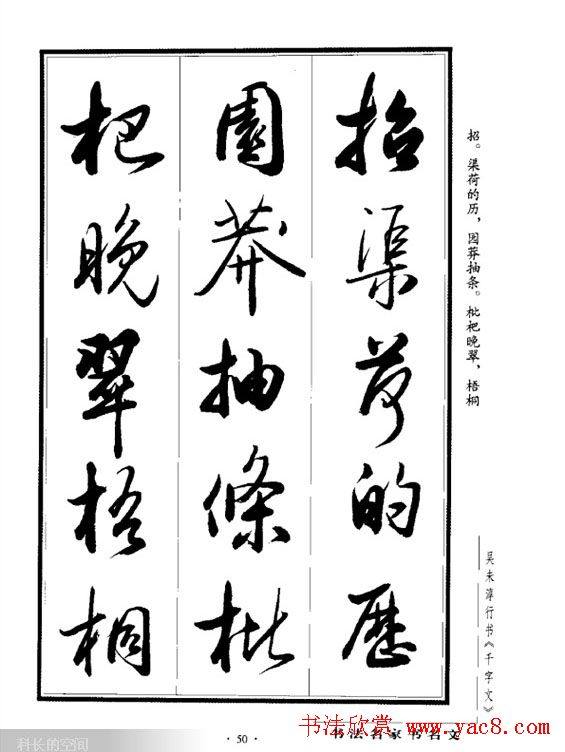 招渠荷的歷
園莽抽條枇
杷晚翠梧桐
招。渠荷的历，园莽抽条。枇杷晚翠，梧桐
吴未淳行书《千字文》
科长的空间
·50·
书法名家书名文
书法欣赏 www.yac8.com